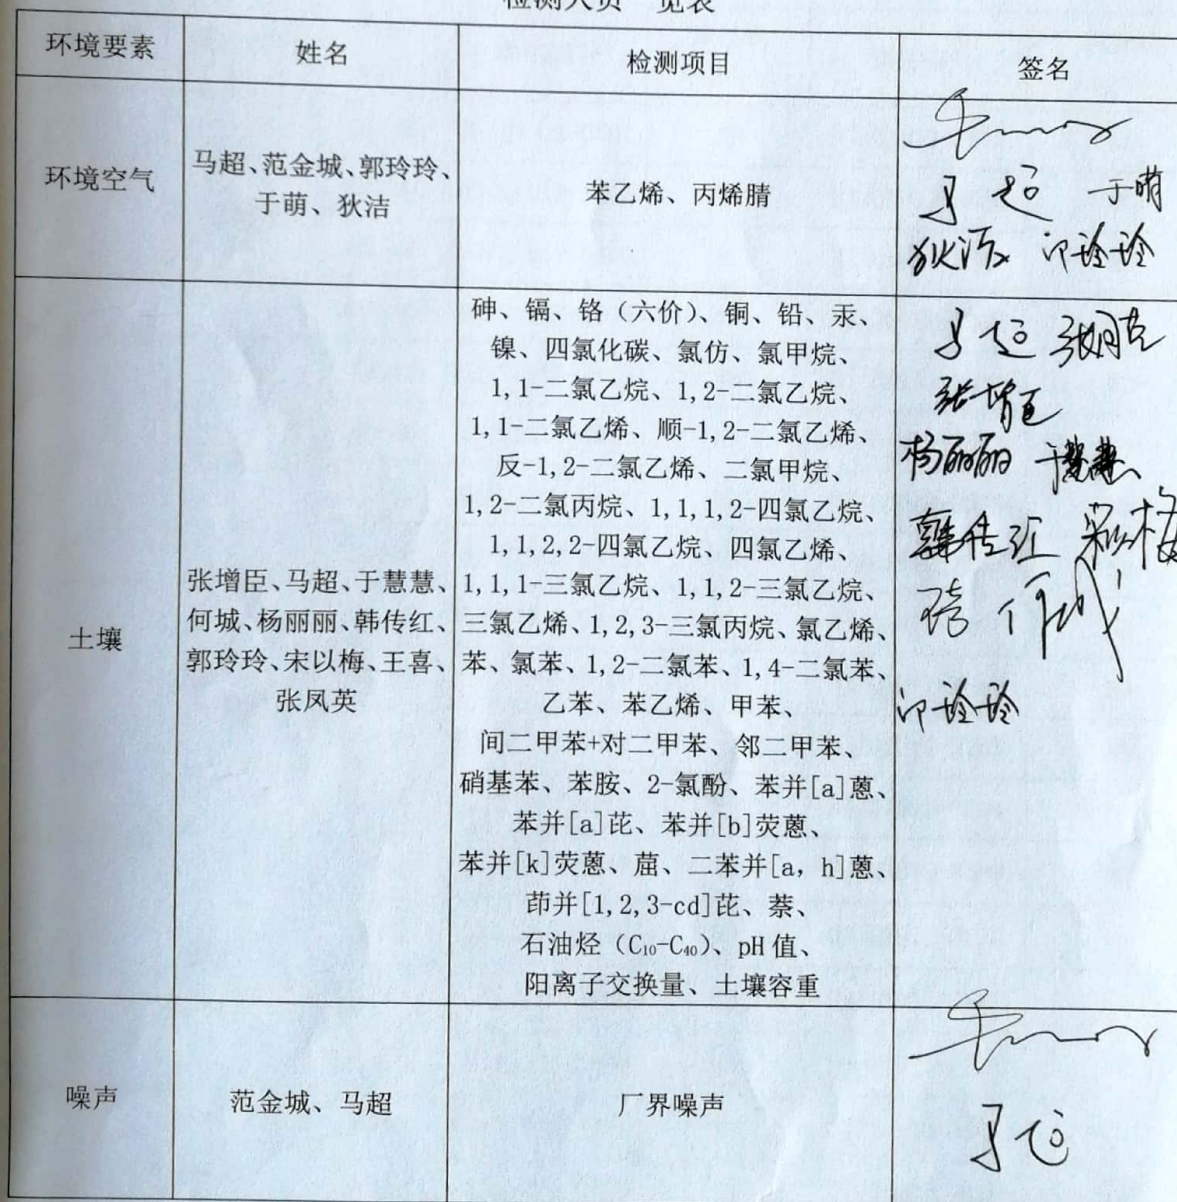 检测人员一览表
环境要素
姓名
检测项目
签名
环境空气
马超、范金城、郭玲玲、
于萌、狄洁
苯乙烯、丙烯腈
马超 于萌
狄洁 郭玲玲
土壤
张增臣、马超、于慧慧、
何城、杨丽丽、韩传红、
郭玲玲、宋以梅、王喜、
张凤英
砷、镉、铬（六价）、铜、铅、汞、
镍、四氯化碳、氯仿、氯甲烷、
1,1-二氯乙烷、1,2-二氯乙烷、
1,1-二氯乙烯、顺-1,2-二氯乙烯、
反-1,2-二氯乙烯、二氯甲烷、
1,2-二氯丙烷、1,1,1,2-四氯乙烷、
1,1,2,2-四氯乙烷、四氯乙烯、
1,1,1-三氯乙烷、1,1,2-三氯乙烷、
三氯乙烯、1,2,3-三氯丙烷、氯乙烯、
苯、氯苯、1,2-二氯苯、1,4-二氯苯、
乙苯、苯乙烯、甲苯、
间二甲苯+对二甲苯、邻二甲苯、
硝基苯、苯胺、2-氯酚、苯并[a]蒽、
苯并[a]芘、苯并[b]荧蒽、
苯并[k]荧蒽、䓛、二苯并[a, h]蒽、
茚并[1,2,3-cd]芘、萘、
石油烃（C₁₀-C₄₀）、pH值、
阳离子交换量、土壤容重
马超
张增臣
杨丽丽 于慧慧
韩传红 宋以梅
何城
郭玲玲
噪声
范金城、马超
厂界噪声
马超